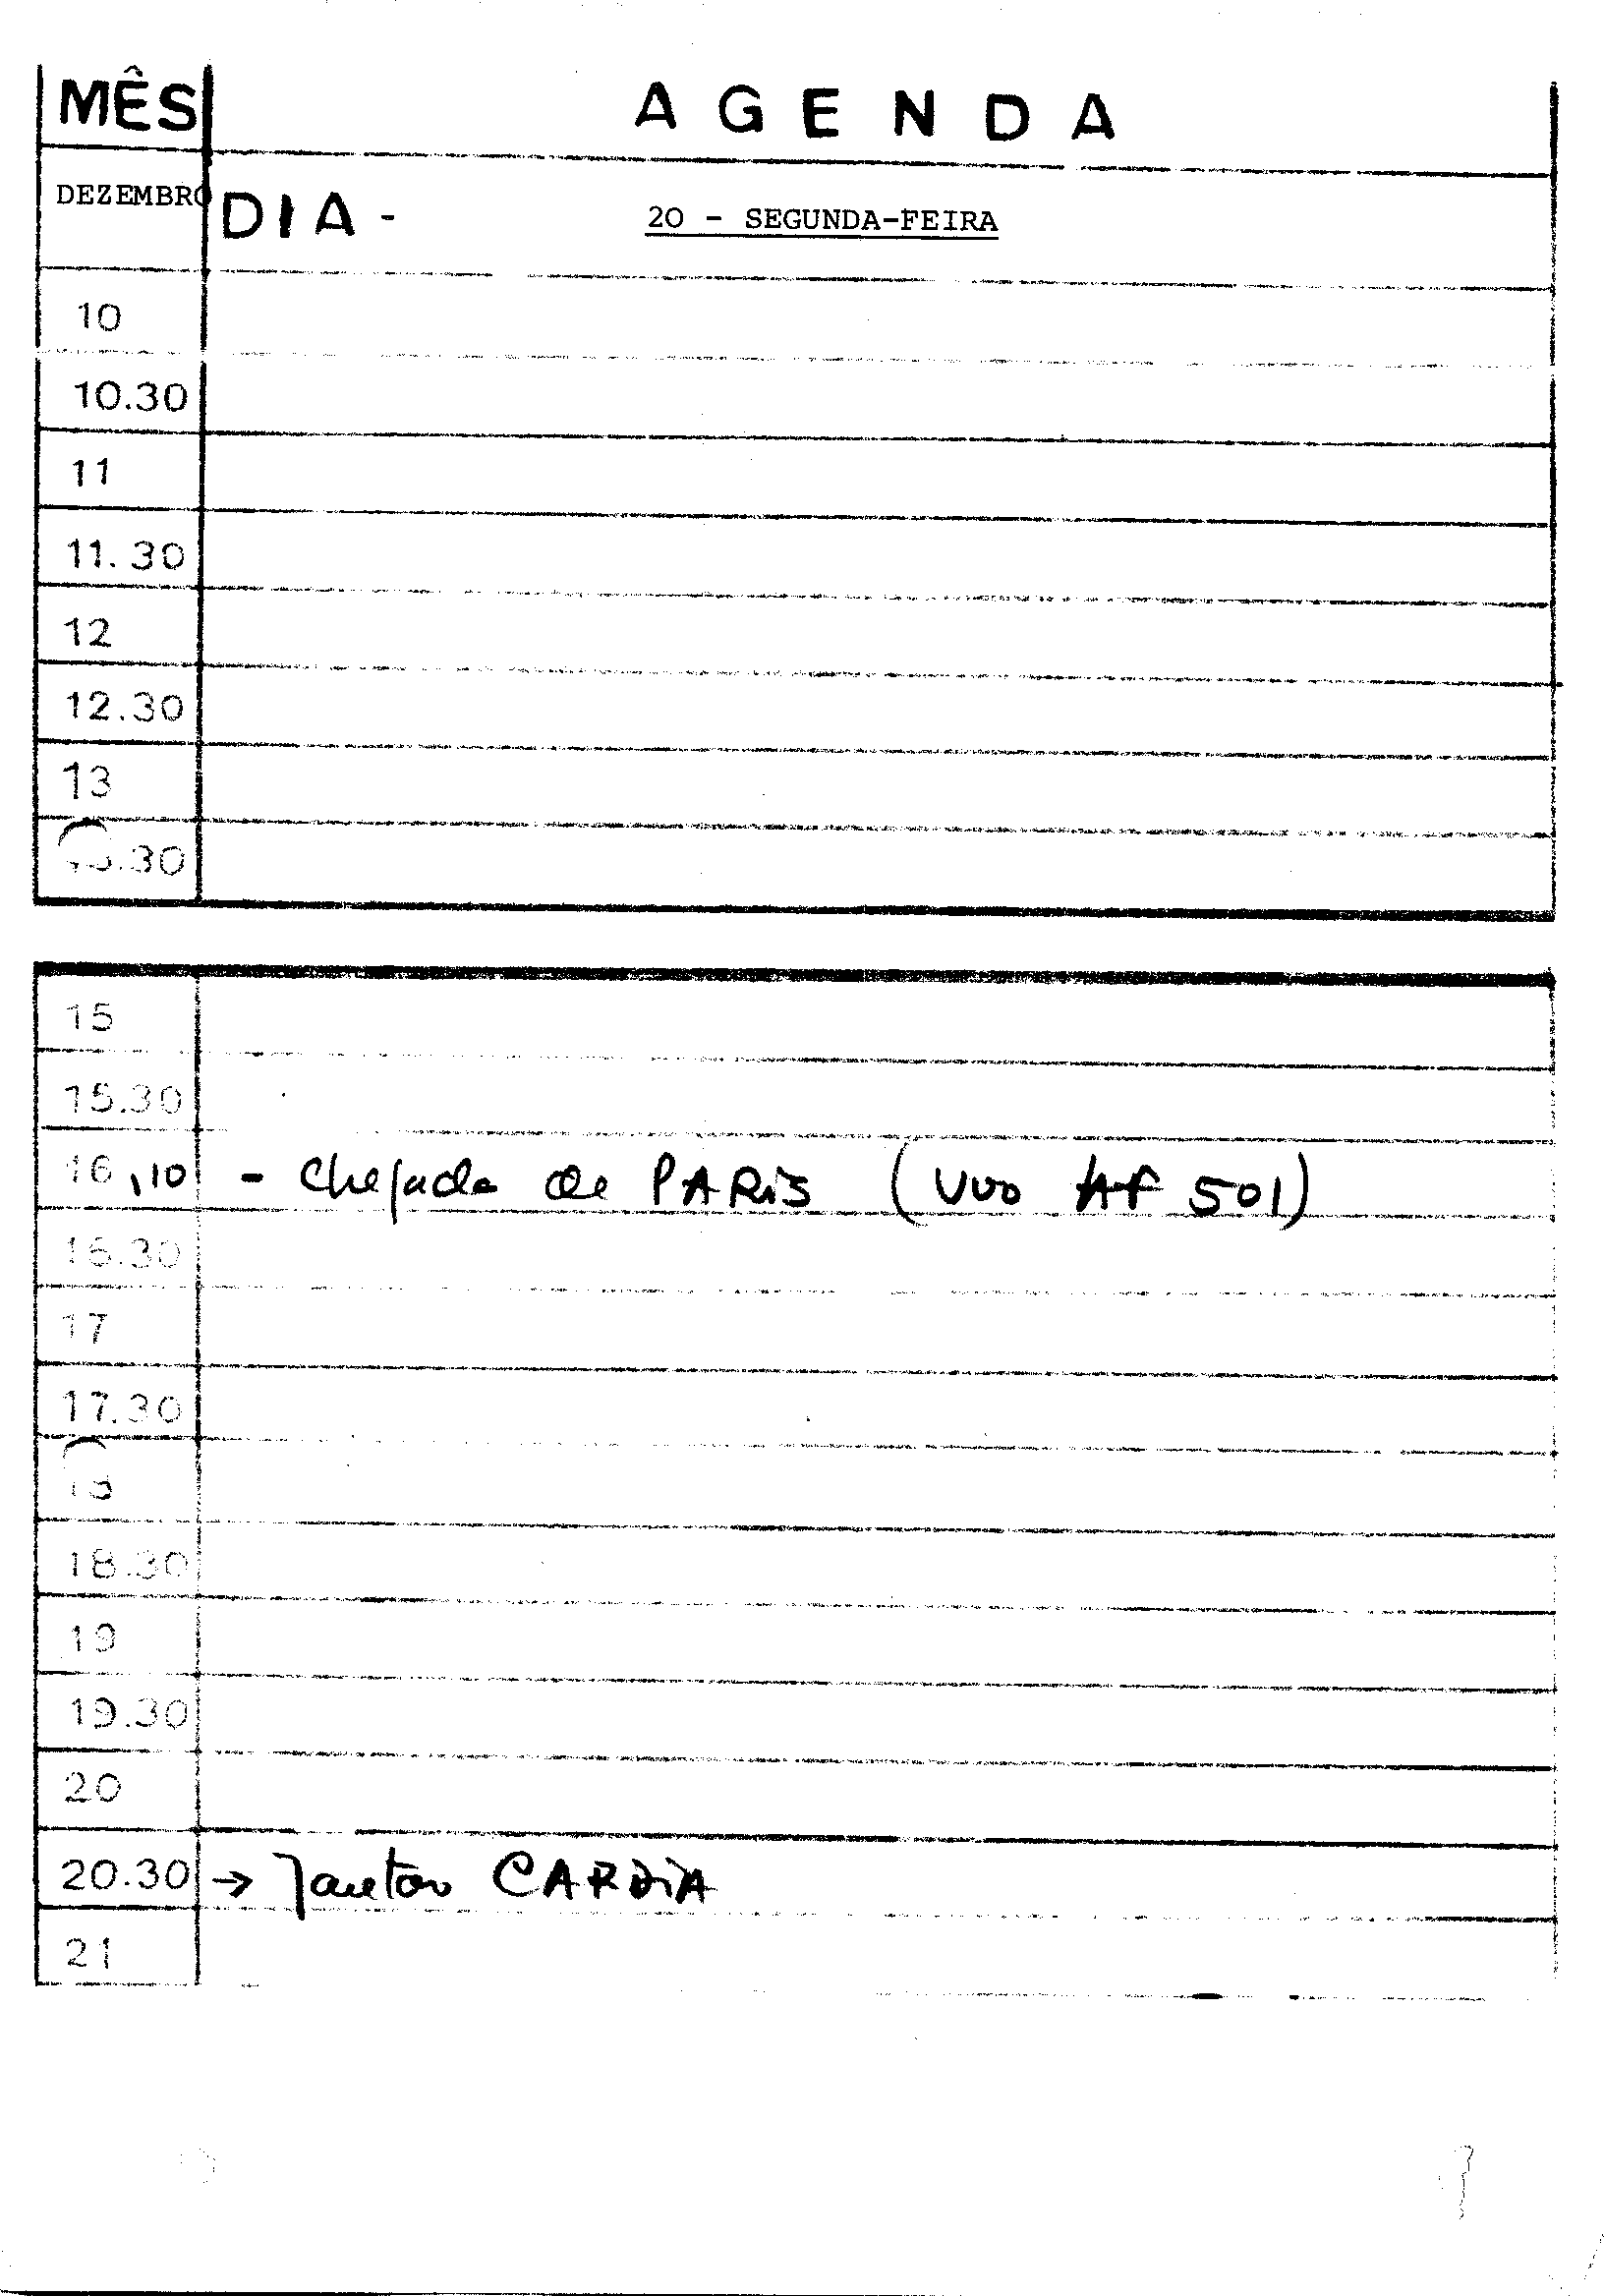 MÊS
A G E N D A
DEZEMBRO
DIA -
20 - SEGUNDA-FEIRA
10
10.30
11
11.30
12
12.30
13
13.30
15
15.30
16,10 - Chegada de PARIS (voo AF 501)
16.30
17
17.30
18
18.30
19
19.30
20
20.30 → Jantar CARDIA
21